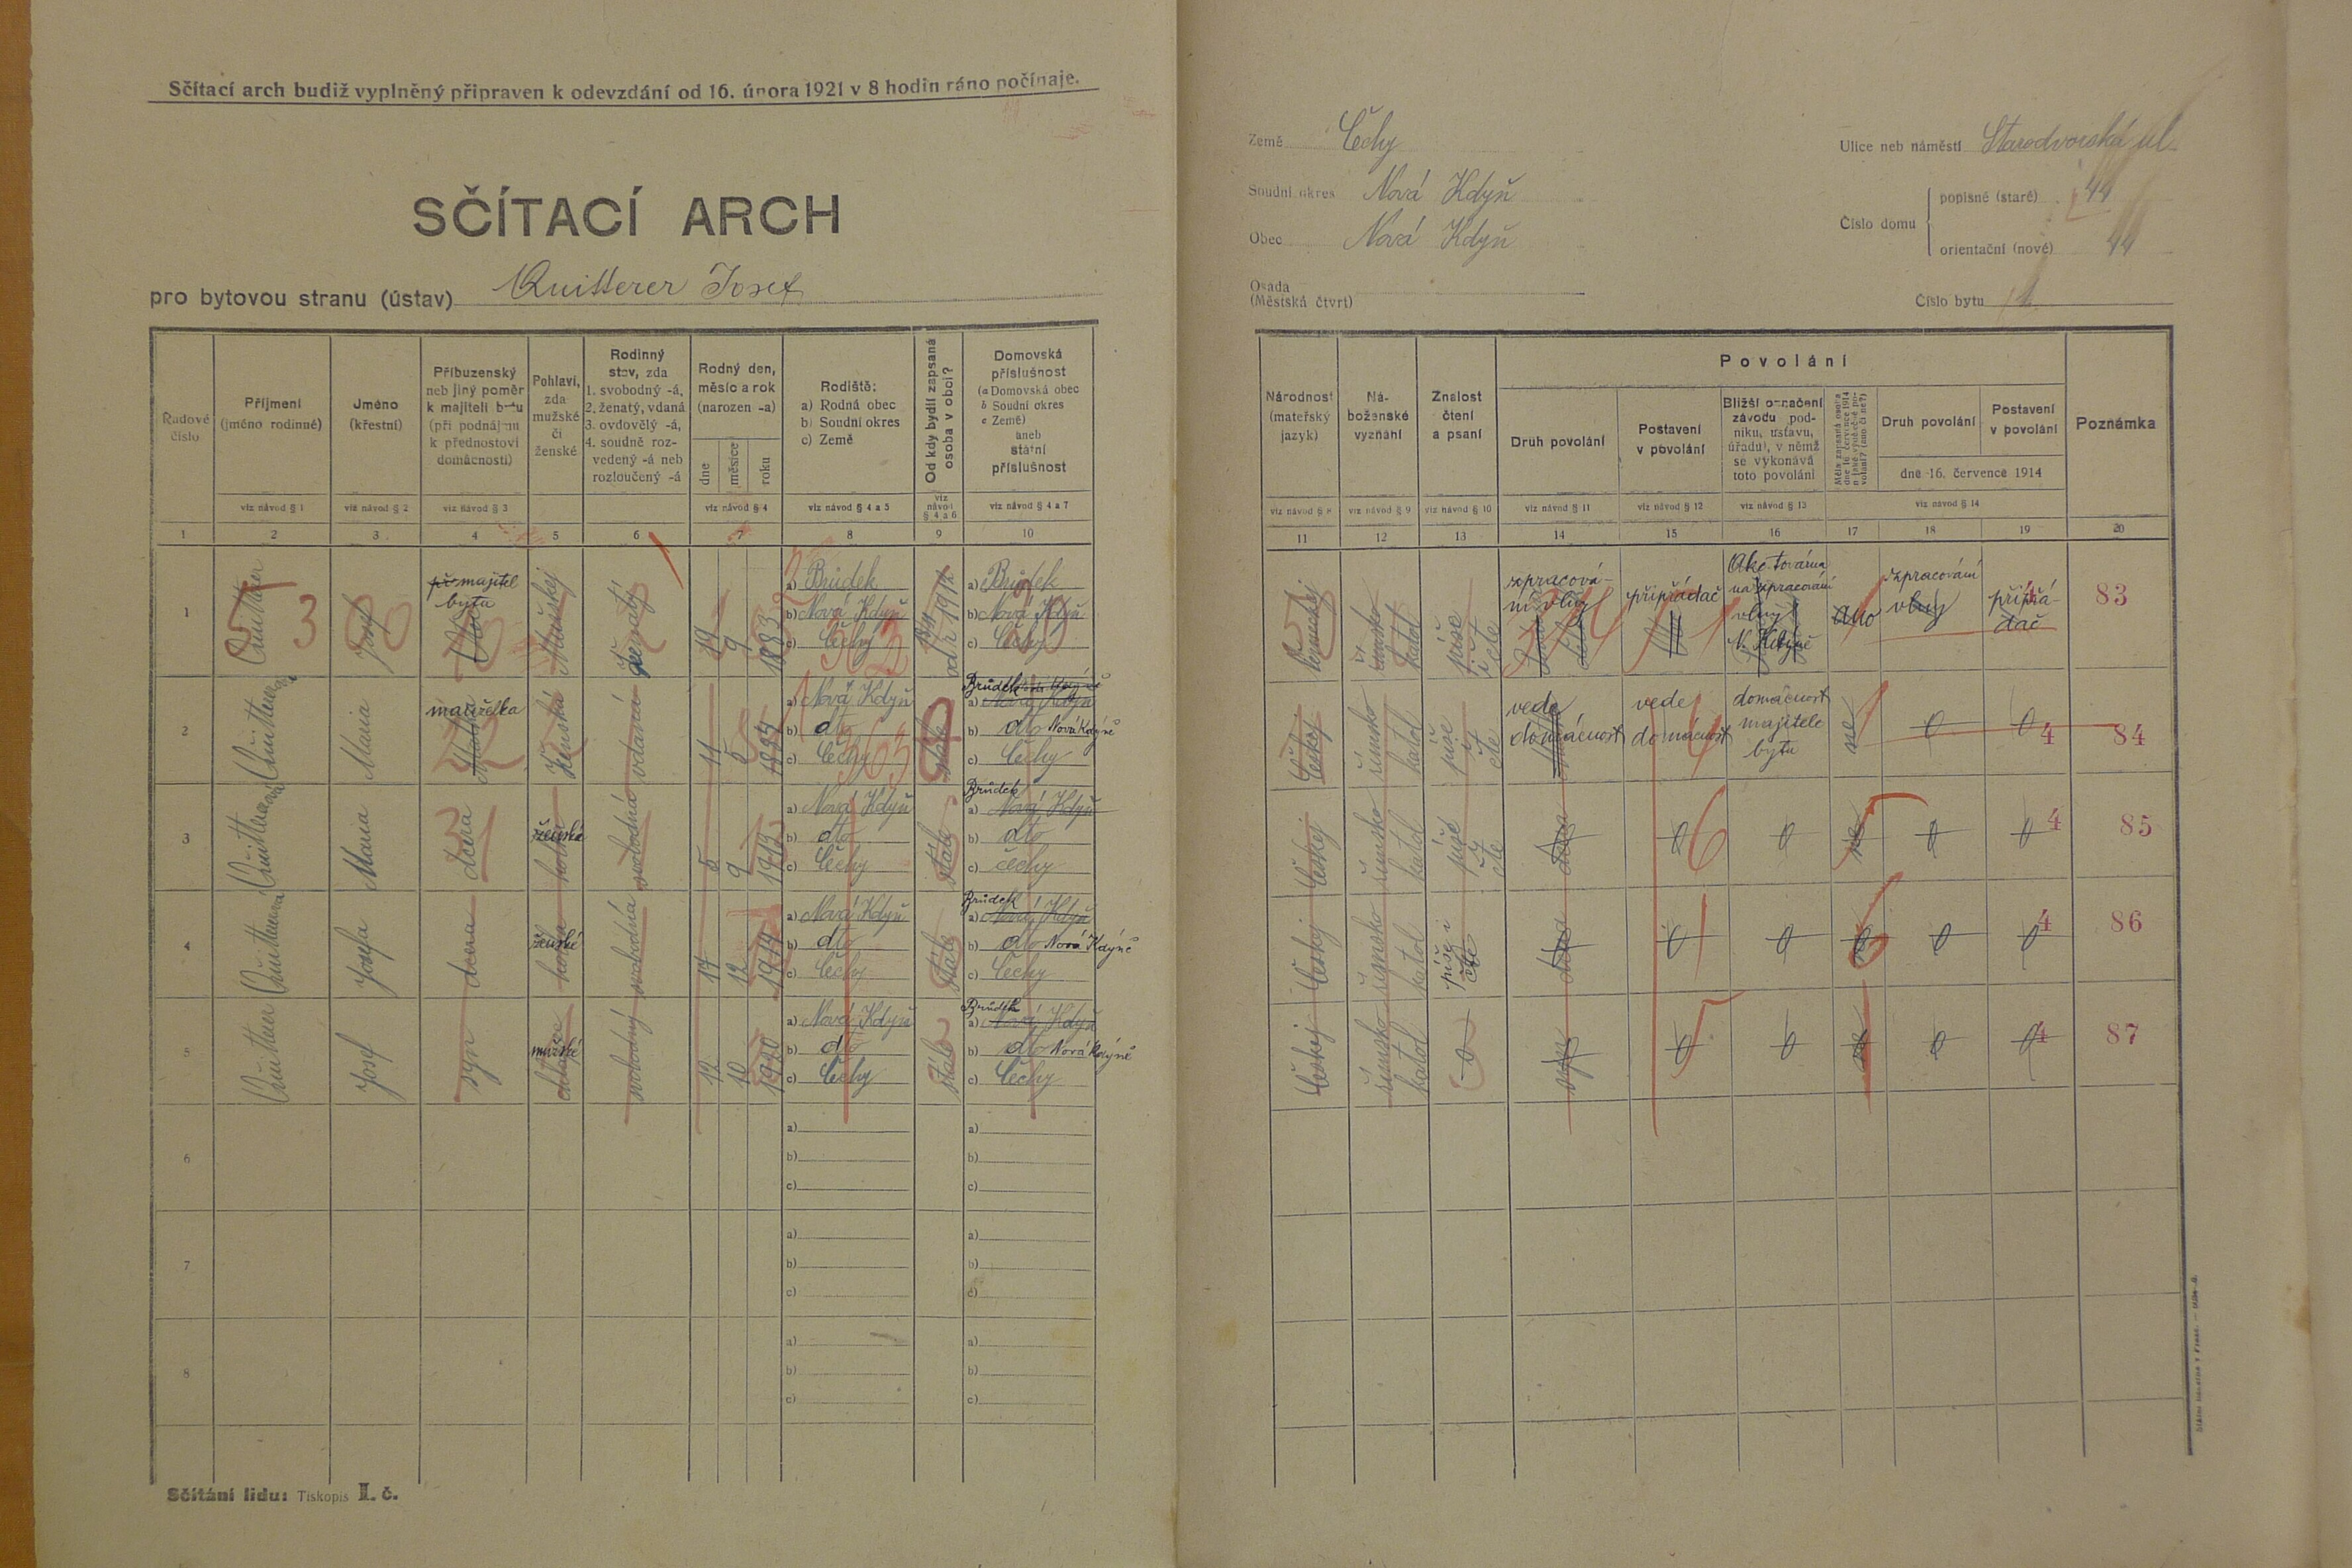 Sčítací arch budiž vyplněný připraven k odevzdání od 16. února 1921 v 8 hodin ráno počínaje.
SČÍTACÍ ARCH
pro bytovou stranu (ústav) Quitterer Josef
Řadové číslo
Příjmení (jméno rodinné)
viz návod § 1
Jméno (křestní)
viz návod § 2
Příbuzenský neb jiný poměr k majiteli bytu (při podnájmu k přednostovi domácnosti)
viz návod § 3
Pohlaví, zda mužské či ženské
Rodinný stav, zda
1. svobodný -á,
2. ženatý, vdaná
3. ovdovělý -á,
4. soudně rozvedený -á neb rozloučený -á
Rodný den, měsíc a rok (narozen -a)
dne měsíce roku
viz návod § 4
Rodiště:
a) Rodná obec
b) Soudní okres
c) Země
viz návod § 4 a 5
Od kdy bydlí zapsaná osoba v obci?
viz návod § 4 a 6
Domovská příslušnost
(a Domovská obec
b Soudní okres
c Země)
aneb
státní příslušnost
viz návod § 4 a 7
1 2 3 4 5 6 7 8 9 10
1 Josef majitel bytu Mužskej ženatý 19 9 1883
a) Brůdek
b) Nová Kdyň
c) Čechy
od r 1912
a) Brůdek
b) Nová Kdyň
c) Čechy
2 Maria manželka Ženská vdaná 11 5
a) Nová Kdyň
b) dto
c) Čechy
Brůdek
a) Nová Kdyň
b) dto Nová Kdýně
c) Čechy
3 Maria dcera ženská holka svobodná 5 9 1913
a) Nová Kdyň
b) dto
c) Čechy
stále
Brůdek
a) Nová Kdyň
b) dto
c) čechy
4 Josefa dcera ženské holka svobodná 17 12 1914
a) Nová Kdyň
b) dto
c) Čechy
stále
Brůdek
a) Nová Kdyň
b) dto Nová Kdýně
c) Čechy
5 Josef syn mužské svobodný 12 10 1920
a) Nová Kdyň
b) dto
c) Čechy
stále
Brůdek
a) Nová Kdyň
b) dto Nová Kdýně
c) Čechy
6
a)
b)
c)
a)
b)
c)
7
a)
b)
c)
a)
b)
c)
8
a)
b)
c)
a)
b)
c)
Sčítání lidu: Tiskopis I. č.
Země Čechy
Soudní okres Nová Kdyň
Obec Nová Kdyň
Osada
(Městská čtvrť)
Ulice neb náměstí Starodvorská ul.
Číslo domu
popisné (staré) 44
orientační (nové) 44
Číslo bytu 1
Národnost (mateřský jazyk)
viz návod § 8
Náboženské vyznání
viz návod § 9
Znalost čtení a psaní
viz návod § 10
Povolání
Druh povolání
viz návod § 11
Postavení v povolání
viz návod § 12
Bližší označení závodu podniku, ústavu, úřadu), v němž se vykonává toto povolání
viz návod § 13
Měla zapsaná osoba dne 16. července 1914 nějaké výdělečné povolání? (ano či ne?)
Druh povolání
Postavení v povolání
dne 16. července 1914
viz návod § 14
Poznámka
11 12 13 14 15 16 17 18 19 20
katol píše i čte
zpracování vlny
připřádač
Akc. továrna na zpracování vlny
N. Kdýně
ano
zpracování vlny
připřádač
83
Českej římsko katol píše čte
vede domácnost
vede domácnost
domácnost majitele bytu
ne 0 0 4 84
Českej římsko katol píše čte
0 0 ne 0 0 4 85
Českej římsko katol píše i čte
0 0 0 0 4 86
Českej římsko katol 0 syn
0 0 ne 0 0 4 87